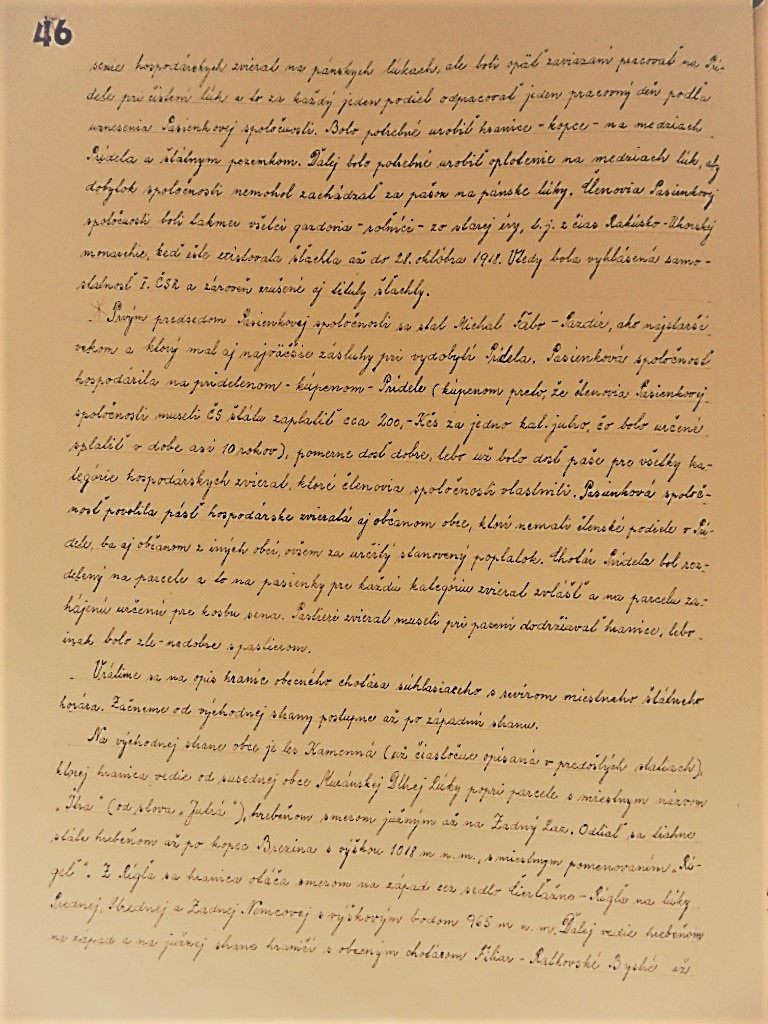 46
senie hospodárskych zvierat na pánskych lúkach, ale boli opäť zaviazaní pracovať na Prí-
dele pri čistení lúk a to za každý jeden podiel odpracovať jeden pracovný deň podľa
uznesenia Pasienkovej spoločnosti. Bolo potrebné urobiť hranice - kopce - na medziach
Prídela a štátnym pozemkom. Ďalej bolo potrebné urobiť oplotenie na medziach lúk, aby
dobytok spoločnosti nemohol zachádzať za pašou na pánske lúky. Členovia Pasienkovej
spoločnosti boli takmer všetci gazdovia - roľníci - zo starej éry, t. j. z čias Rakúsko-Uhorskej
monarchie, keď ešte existovala šľachta až do 28. októbra 1918. Vtedy bola vyhlásená samo-
statnosť I. ČSR a zároveň zrušené aj tituly šľachty.
Prvým predsedom Pasienkovej spoločnosti sa stal Michal Fábo - Pazdič, ako najstarší
vekom a ktorý mal aj najväčšie zásluhy pri vydobytí Prídela. Pasienková spoločnosť
hospodárila na pridelenom - kúpenom - Prídele (kúpenom preto, že členovia Pasienkovej
spoločnosti museli ČS štátu zaplatiť cca 200,- Kčs za jedno kat. jutro, čo bolo určené
splatiť v dobe asi 10 rokov), pomerne dosť dobre, lebo už bolo dosť paše pre všetky ka-
tegórie hospodárskych zvierat, ktoré členovia spoločnosti vlastnili. Pasienková spoloč-
nosť povolila pásť hospodárske zvieratá aj občanom obce, ktorí nemali členské podiele v Prí-
dele, ba aj občanom z iných obcí, ovšem za určitý stanovený poplatok. Chotár Prídela bol roz-
delený na parcele a to na pasienky pre každú kategóriu zvierat zvlášť a na parcelu za-
hájenú určenú pre kosbu sena. Pastieri zvierat museli pri pasení dodržiavať hranice, lebo
inak bolo zle-nedobre s pastierom.
Vrátime sa na opis hraníc obecného chotára súhlasiaceho s revírom miestneho štátneho
horára. Začneme od východnej strany postupne až po západnú stranu.
Na východnej strane obce je les Kamenná (už čiastočne opísaná v predošlých statiach),
ktorej hranica vedie od susednej obce Muránskej Dlhej Lúky popri parcele s miestnym názvom
"Itra" (od slova "Jutrá"), hrebeňom smerom južným až na Zadný Laz. Odtiaľ sa tiahne
stále hrebeňom až po kopec Brezina s výškou 1018 m n. m., s miestnym pomenovaním "Rí-
gel". Z Rígľa sa hranica otáča smerom na západ cez sedlo Čierťažne - Rígľa na lúky
Prednej, Strednej a Zadnej Nemcovej s výškovým bodom 965 m n. m. Ďalej vedie hrebeňom
na západ a na južnej strane hraničí s obecným chotárom Filiar - Ratkovské Bystré až